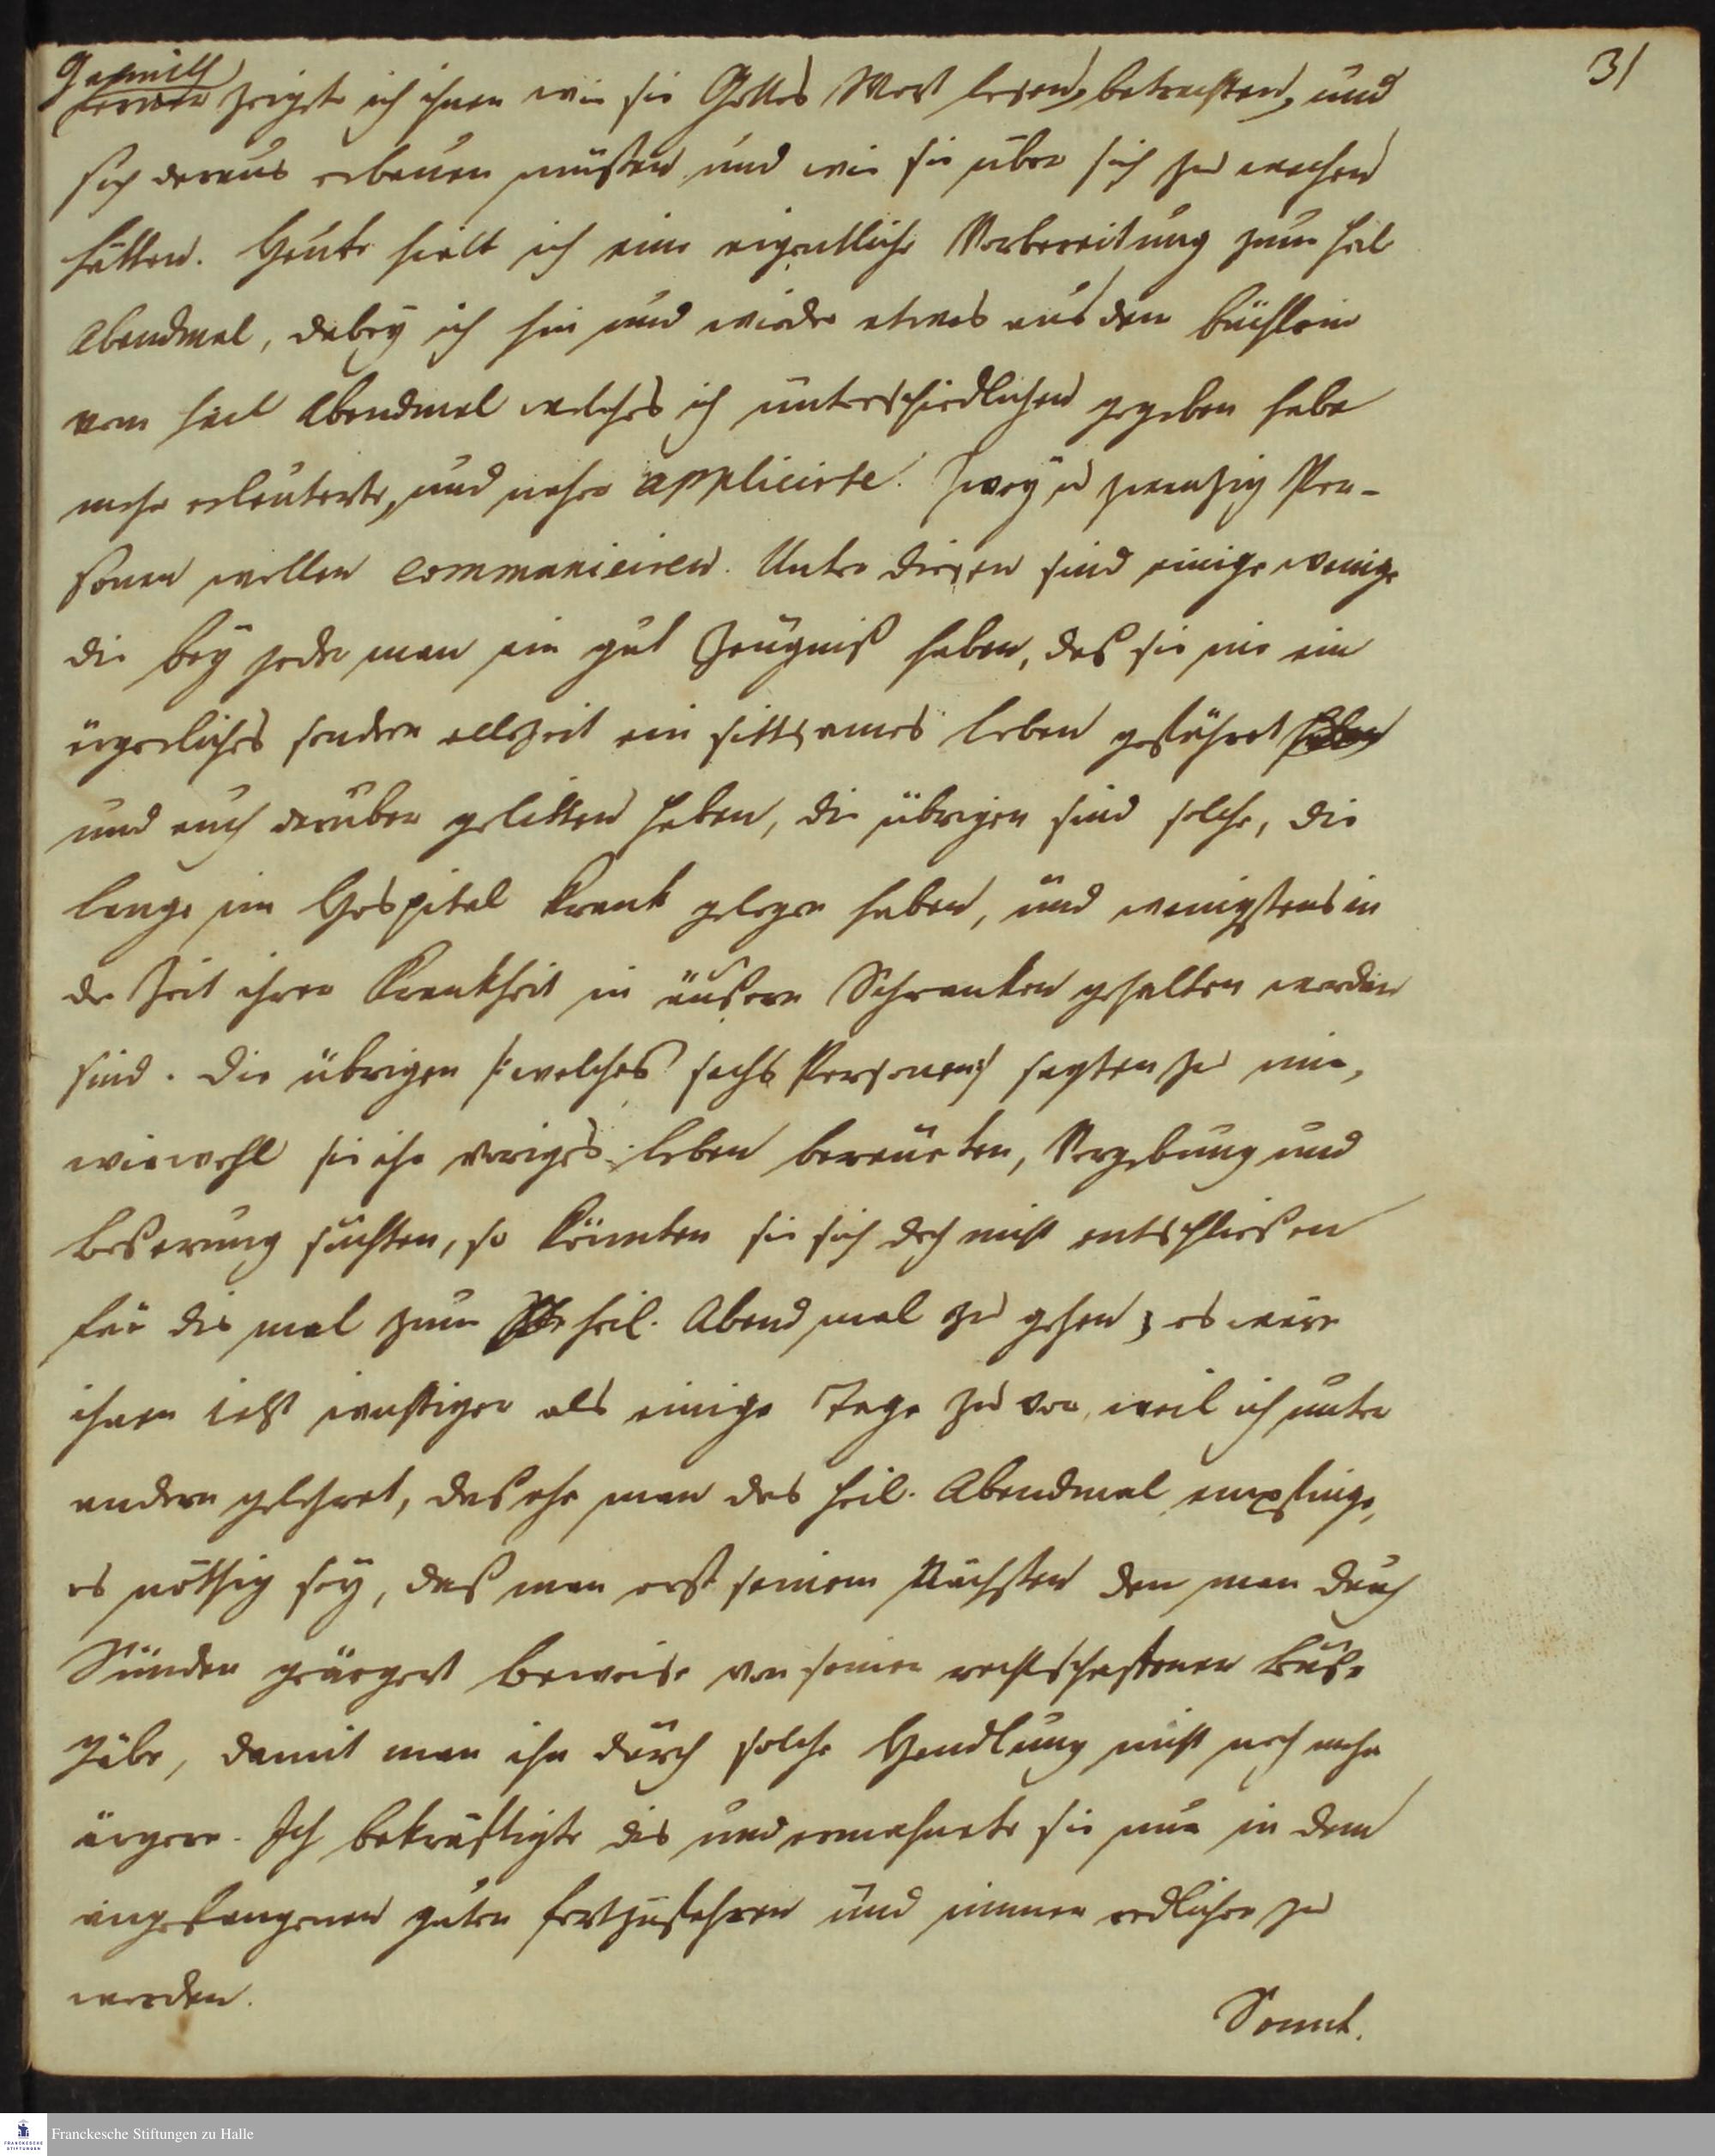 31
Gehnith
ferner zeigte ich ihnen wie sie Gottes Wort lesen, betrachten, und
sich daraus erbauen müsten und wie sie über sich zu wachen
hätten. Heute hielt ich eine eigentliche Vorbereitung zum heil
Abendmal, dabey ich hin und wieder etwas aus dem büchlein
vom heil Abendmal welches ich unterschiedlichen gegeben habe
mehr erleuterte, und näher applicirte. Zwey u zwanzig Per-
sonen wollen communiciren. Unter diesen sind einige wenige
die bey jederman ein gut Zeugniß haben, daß sie nie ein
ärgerliches sondern allezeit ein sittsames leben geführet haben
und auch darüber gelitten haben, die übrigen sind solche, die
lange im Hospital krank gelegen haben, und wenigstens in
der Zeit ihrer Krankheit in äußern Schranken gehalten worden
sind. Die übrigen /: welches sechs Personen :/ sagten zu mir,
wiewohl sie ihr voriges leben bereueten, Vergebung und
beßerung suchten, so könnten sie sich doch nicht entschließen
für dis mal zum heil. Abendmal zu gehen; es wäre
ihnen ietzt wichtiger als einige Tage zu vor, weil ich unter
andern gelehret, daß ehe man das heil. Abendmal empfinge,
es nöthig sey, daß man erst seinem Nächsten den man durch
Sünden geärgert beweise von seiner rechtschaffenen buße
gäbe, damit man ihn durch solche Handlung nicht noch mehr
ärgere. Ich bekräftigte dis und ermahnete sie nur in dem
angefangenen guten fortzufahren und immer redlicher zu
werden.
Sonnt.
Franckesche Stiftungen zu Halle
FRANCKESCHE STIFTUNGEN